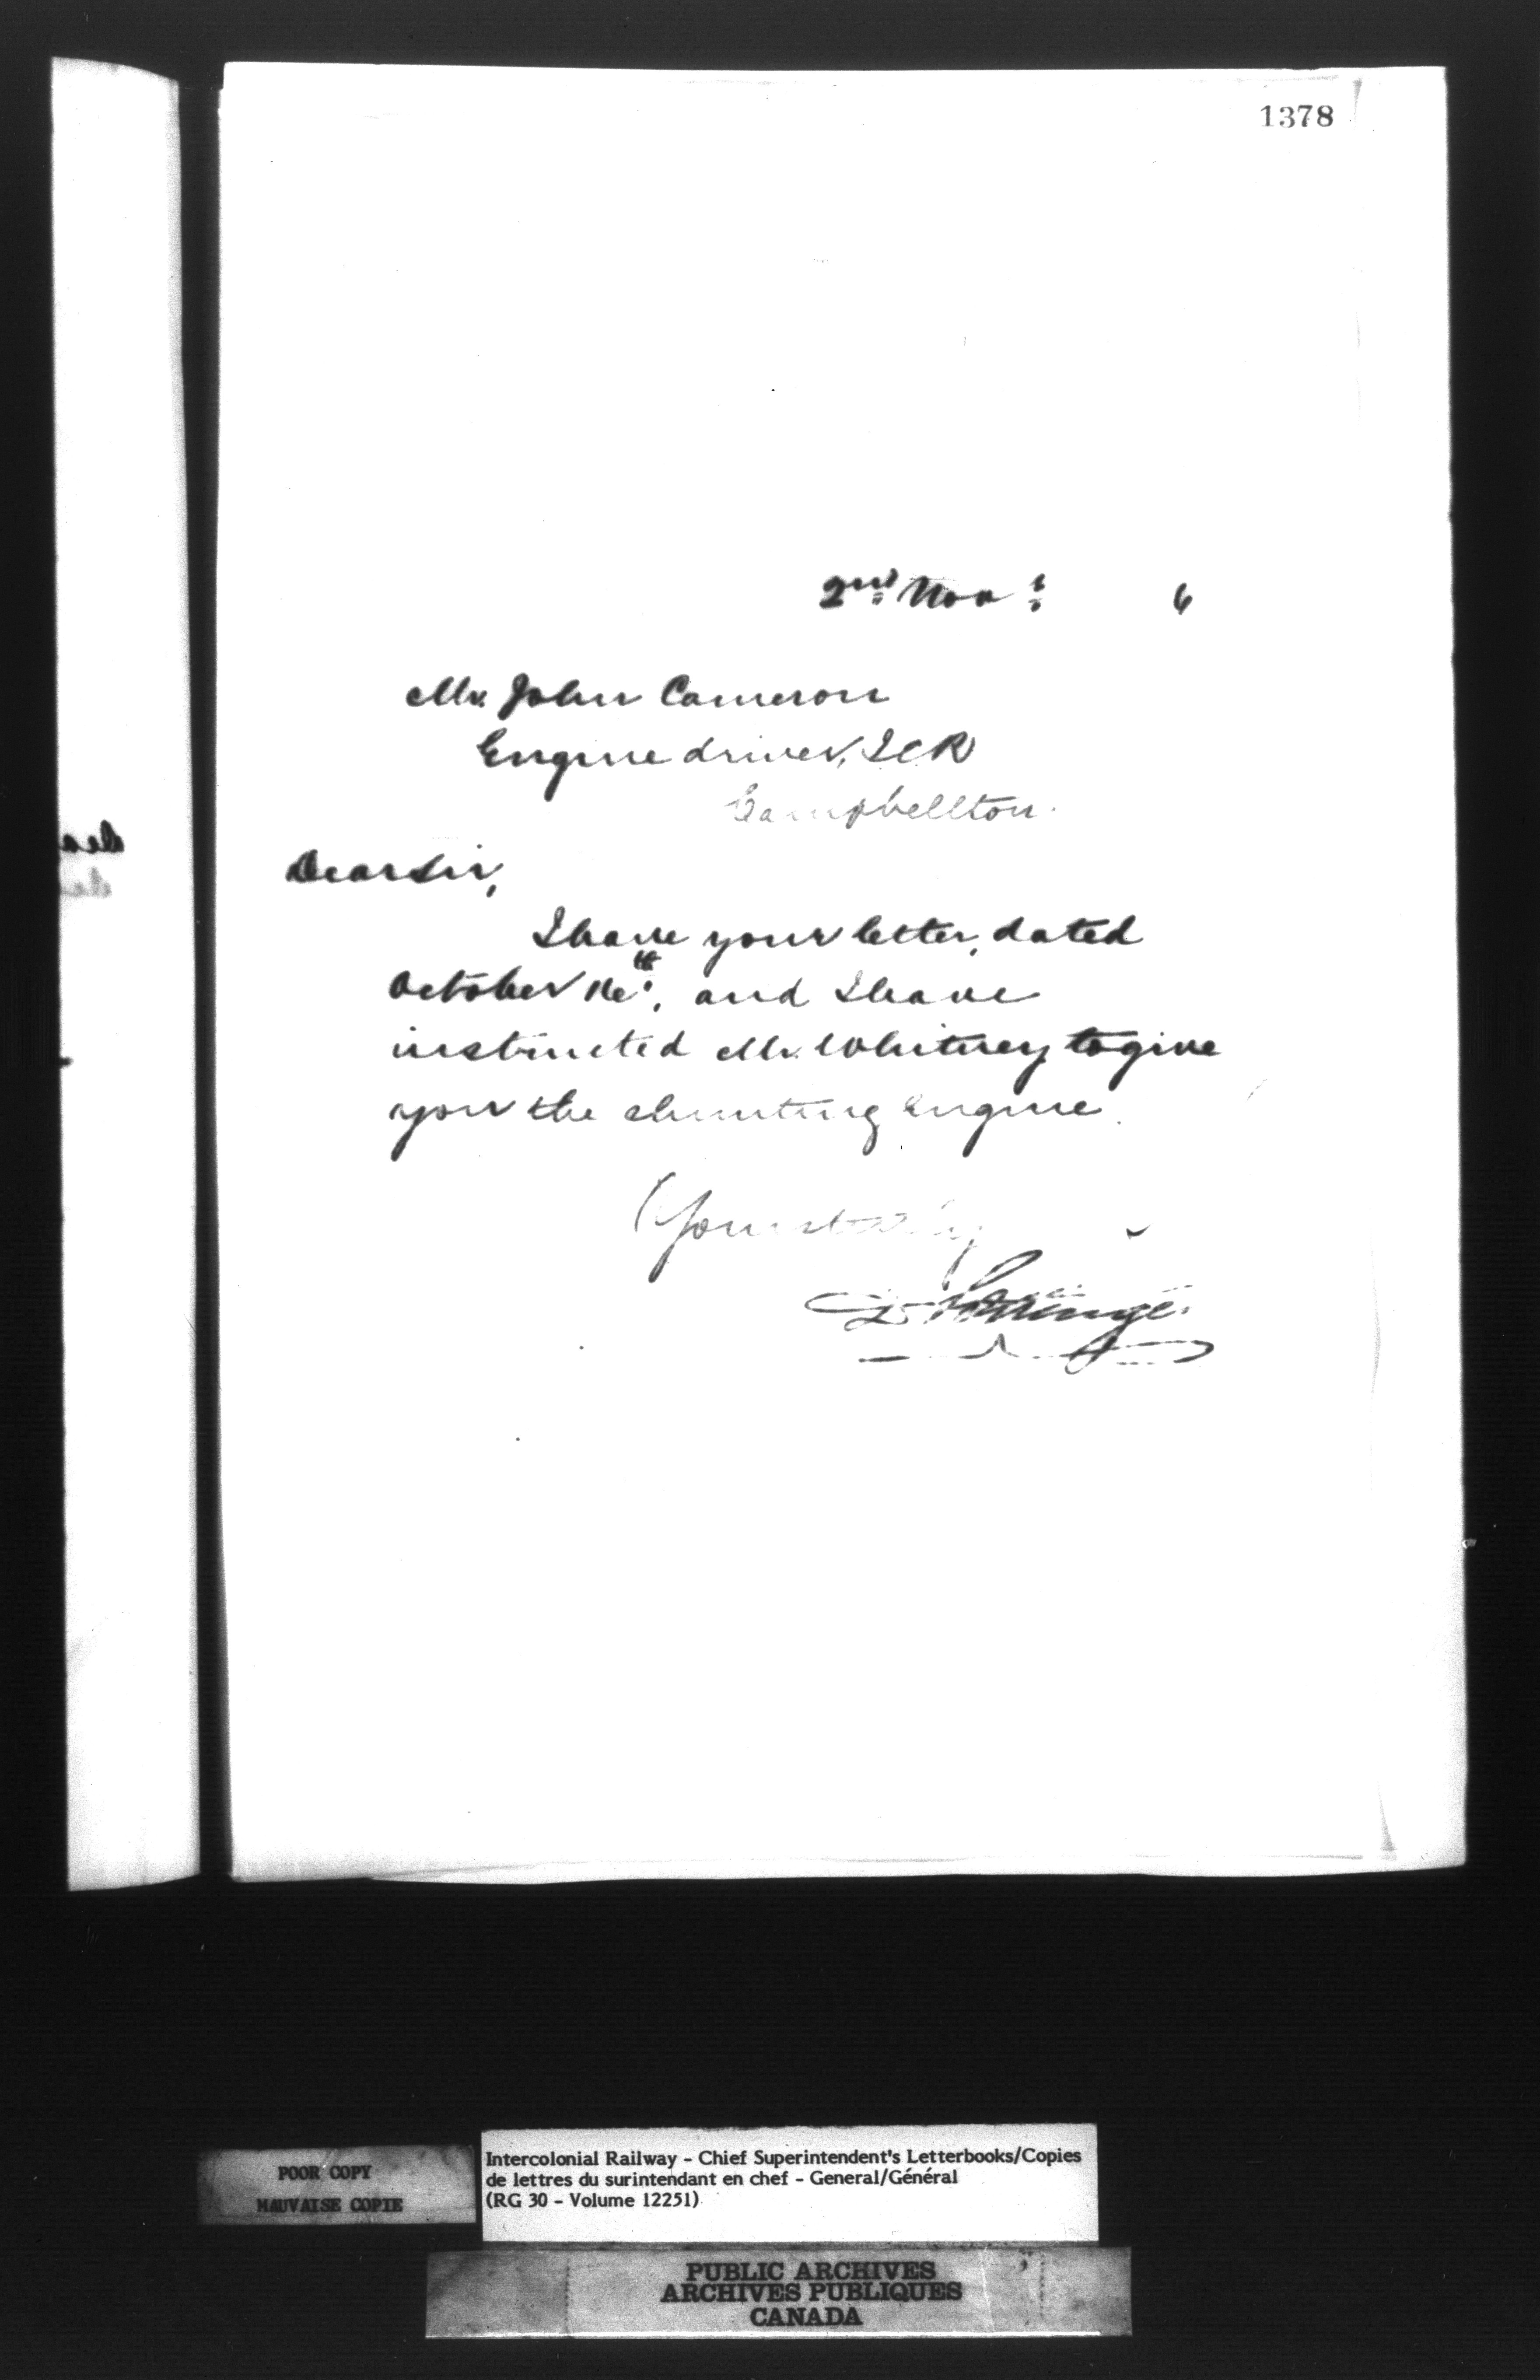 1378
2nd Nov: 6
Mr. John Cameron
Engine driver, ICR
Campbellton.
Dear Sir,
I have your letter, dated
October 16th, and I have
instructed Mr. Whitney to give
you the shunting engine.
Yours truly
D Pottinger
POOR COPY
MAUVAISE COPIE
Intercolonial Railway - Chief Superintendent's Letterbooks/Copies
de lettres du surintendant en chef - General/Général
(RG 30 - Volume 12251)
PUBLIC ARCHIVES
ARCHIVES PUBLIQUES
CANADA